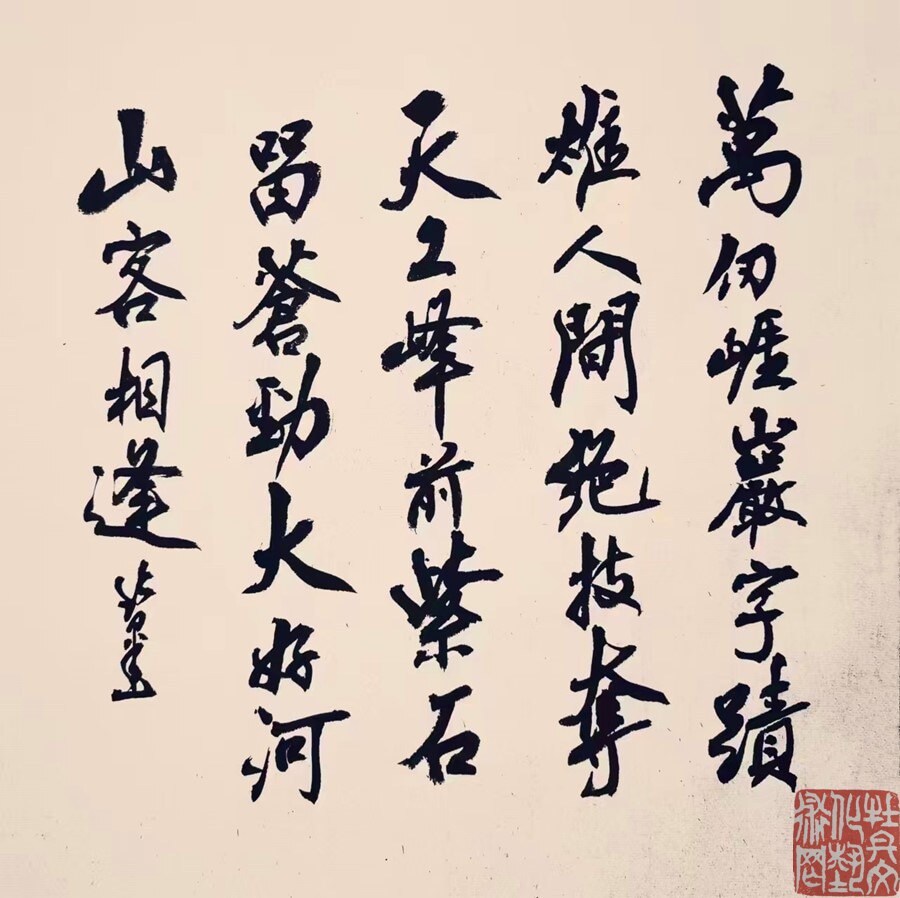 萬仞崖巖字蹟
雄人間絕技奪
天工峰前紫石
留蒼勁大好河
山客相逢